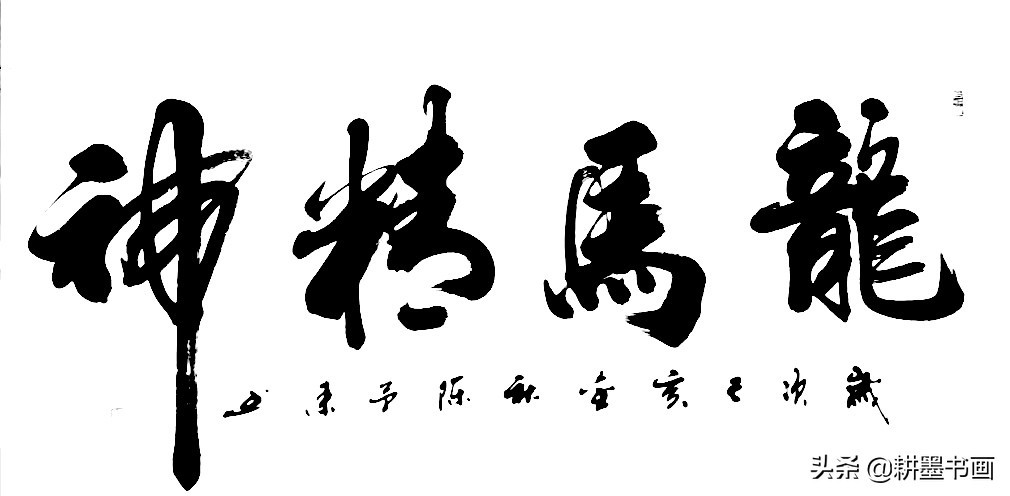 龍馬精神
歲次己亥金秋陈予东书
头条 @耕墨书画